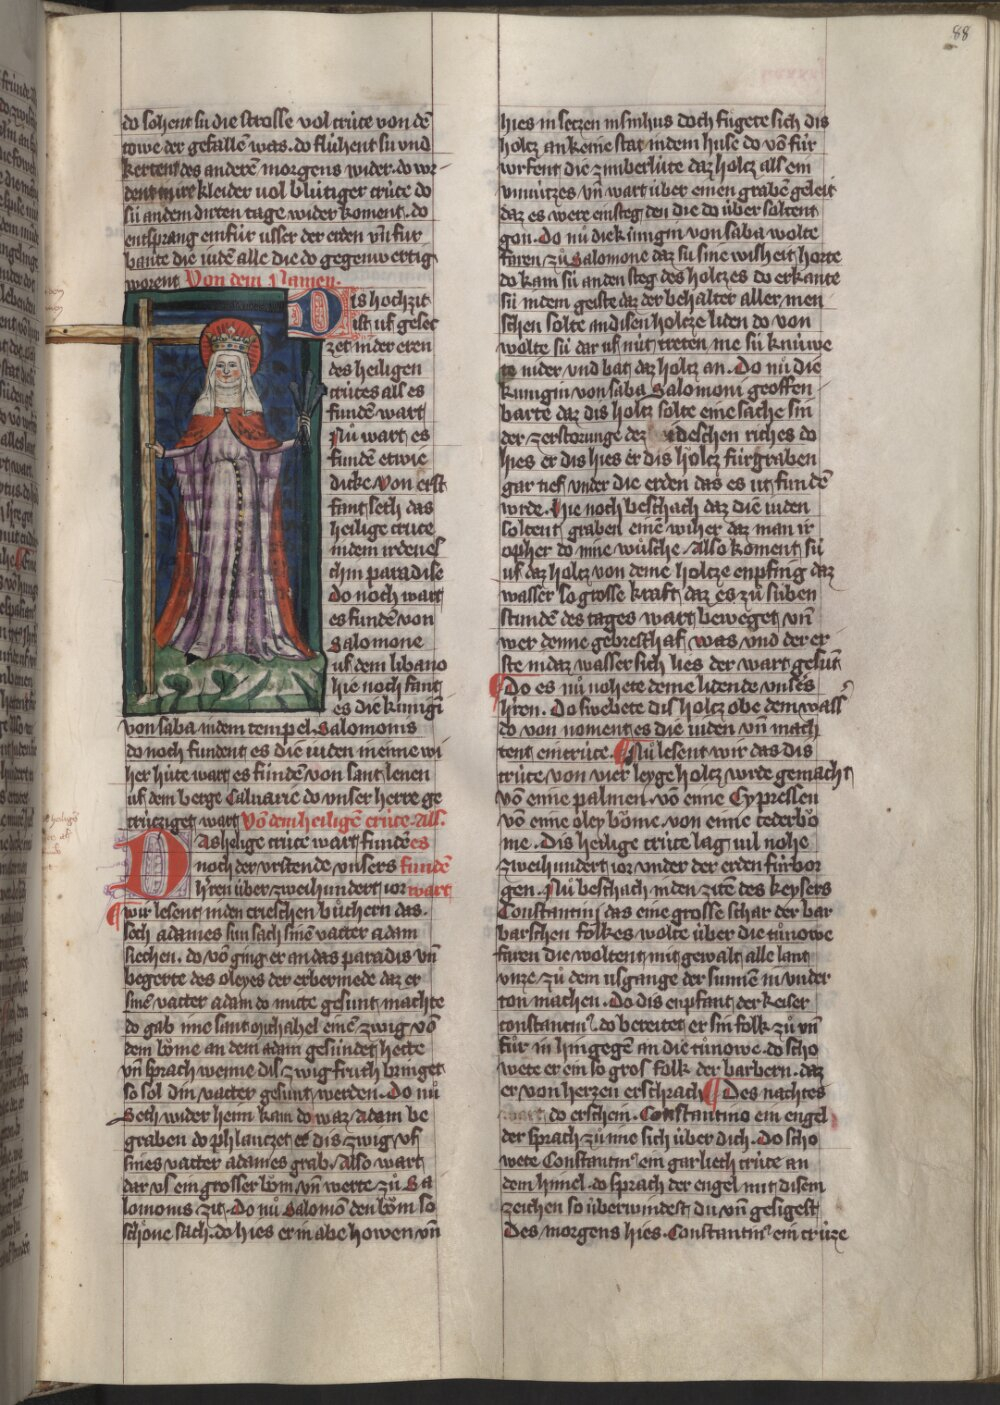 88
do sohent sú die strosse vol crúce von dē
towe der gefallē was. do flúhent sú vnd
kertent des anderē morgens wider. do wor
dent in ire kleider vol blůtiger crúce do
sú an dem dirten tage wider koment. do
entsprang ein fúr usser der erden vn̄ fur
bante die iudē alle die do gegenwertig
worent Von dem Namen.
Dis hochzit
ist uf gesec
zet in der eren
des heiligen
crúces als es
fundē wart
Nů wart es
fundē etwie
dicke von erst
fant seth das
heilige crúce
in dem irdenes
chin paradise
do noch wart
es fundē von
Salomone
uf dem libano
hie noch fant
es die kúnigī
von saba in dem tempel Salomonis
do noch fundent es die iuden in enne wi
her húte wart es fundē von sant lenen
uf dem berge Caluarie do vnser herre ge
crúcziget wart Vō dem heiligē crúce. Als.
Das helige crúce wart fundē es
noch der vrstende vnsers fundē
hʼren úber zweihundert ior wart
wir lesent in den crieschen bůchern das.
seth adames sun sach sinē vatter adam
siechen. do vō ging er an das paradis vn̄
begerte des oleyes der erbermede daz er
sinē vatter adam do mitte gesunt machte
do gab ime sant mychahel einē zwig vō
dem bŏme an dem adam gesúndet hette
vn̄ sprach wenne dis zwig fruch bringet
so sol din vatter gesunt werden. Do nů
Seth wider heim kam do waz adam be
graben do phlanczet er dis zwig vf
sines vatter adames grab. Also wart
dar vs ein grosser bŏm vn̄ werte zů Sa
lomonis zit. Do nů Salomō den bŏm so
schŏne sach. do hies er in abe howen vn̄
hies in seczen in sin hus doch fúgete sich dis
holcz an keine stat in dem huse do vō fúr
wrfent die zimberlúte daz holcz als ein
vnnúczes vn̄ wart úber einen grabē geleit
daz es were ein steg den die do úber soltent
gon. Do nů die kúnigin von saba wolte
faren zů Salomone daz sú sine wisheit horte
do kam sú an den steg des holczes do erkante
sú in dem geiste daz der behalter aller men
schen solte an disen holcze liden do von
wolte sú dar uf nút treten me sú knúwe
te nider vnd bat daz holcz an. Do nů die
kunigin von saba Salomoni geoffen
barte daz dis holcz solte eine sache sin
der zerstorunge dez deschen riches do
hies er dis hies er dis holcz fúrgraben
gar tief vnder die erden das es út fundē
wrde. Hie noch beschach daz die iuden
soltent graben einē wiher daz man ir
opher do inne wůsche. Also koment sú
uf daz holcz von deme holcze enpfing daz
wasser so grosse kraft daz es zů súben
stundē des tages wart beweget vn̄
wer denne gebresthaf was vnd der er
ste in daz wasser sich lies der wart gesūt
Do es nů nohete deme lidende vnsers
hʼren. Do swebete dis holcz obe dem wassʼ
do von noment es die iuden vn̄ mach
tent ein crúce. Nů lesent wir das dis
crúce von vier leyge holcz wrde gemacht
vō eime palmen. vō eime Cypressen
vō eime oley bŏme. von eime cederbŏ
me. Dis heilige crúce lag wl nohe
zweihundert ior vnder der erden fúrbor
gen. Nů beschach in den zitē des keysers
Constantini das eine grosse schar der bar
barschen folkes wolte úber die tůnowe
faren die woltent mit gewalt alle lant
vncze zů dem usgange der sunnē in vnder
ton machen. Do dis enpfant der keiser
constantinꝰ. do bereitet er sin folk zů vn̄
fůr in hin gegē an die tůnowe. do scho
wete er ein so gros folk der barbern. daz
er von herzen erschrach Des nachtes
do erschein. Constantino ein engel
der sprach zů ime sich úber dich. Do scho
wete Constantinꝰ ein gar liech crúce an
dem himel. do sprach der engel mit disem
zeichen so úberwindest du vn̄ gesigest
Des morgens hies Constantinꝰ ein crúze